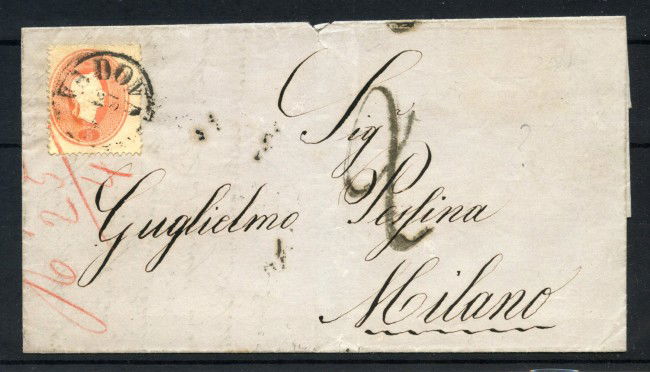 PADOVA
Sigr
Guglielmo Pessina
Milano
2
25/4